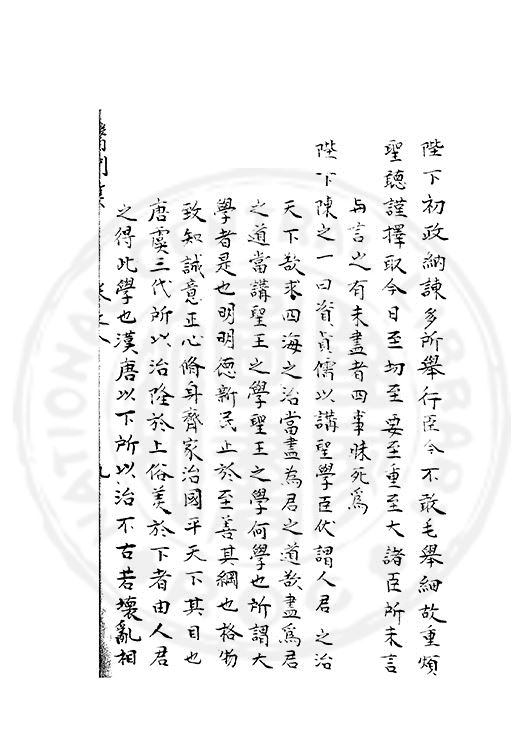 陛下初政納諫多所舉行臣今不敢毛舉細故重煩
聖聽謹擇取今日至切至要至重至大諸臣所未言
與言之有未盡者四事昧死爲
陛下陳之一曰資眞儒以講聖學臣伏謂人君之治
天下欲求四海之治當盡為君之道欲盡爲君
之道當講聖王之學聖王之學何學也所謂大
學者是也明明德新民止於至善其綱也格物
致知誠意正心脩身齊家治國平天下其目也
唐虞三代所以治隆於上俗美於下者由人君
之得此學也漢唐以下所以治不古若壞亂相